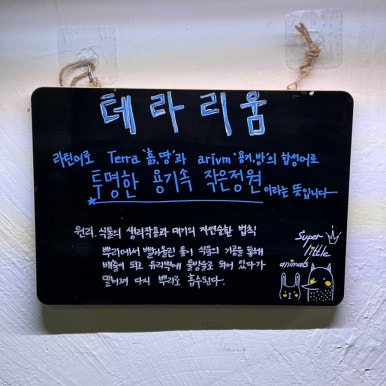 테라리움
라틴어로 Terra '흙,땅'과 arium '용기,방'의 합성어로
투명한 용기속 작은정원 이라는 뜻입니다
원리. 식물의 생리작용과 대기의 자연순환 법칙
뿌리에서 빨아올린 물이 식물의 기공을 통해
배출이 되고 유리벽에 물방울로 되어 있다가
떨어져 다시 뿌리로 흡수된다.
Super
little
animals